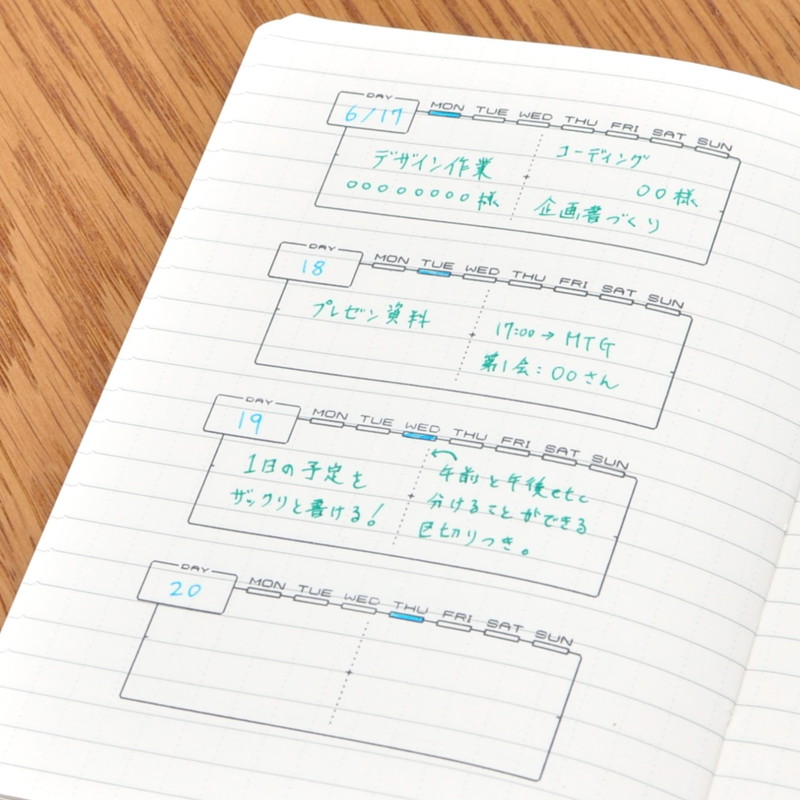 DAY
6/17
MON TUE WED THU FRI SAT SUN
デザイン作業
○○○○○○○○様
コーディング
○○様
企画書づくり
DAY
18
MON TUE WED THU FRI SAT SUN
プレゼン資料
17:00→MTG
第1会：○○さん
DAY
19
MON TUE WED THU FRI SAT SUN
1日の予定を
ザックリと書ける！
午前と午後etc
分けることができる
区切りつき。
DAY
20
MON TUE WED THU FRI SAT SUN